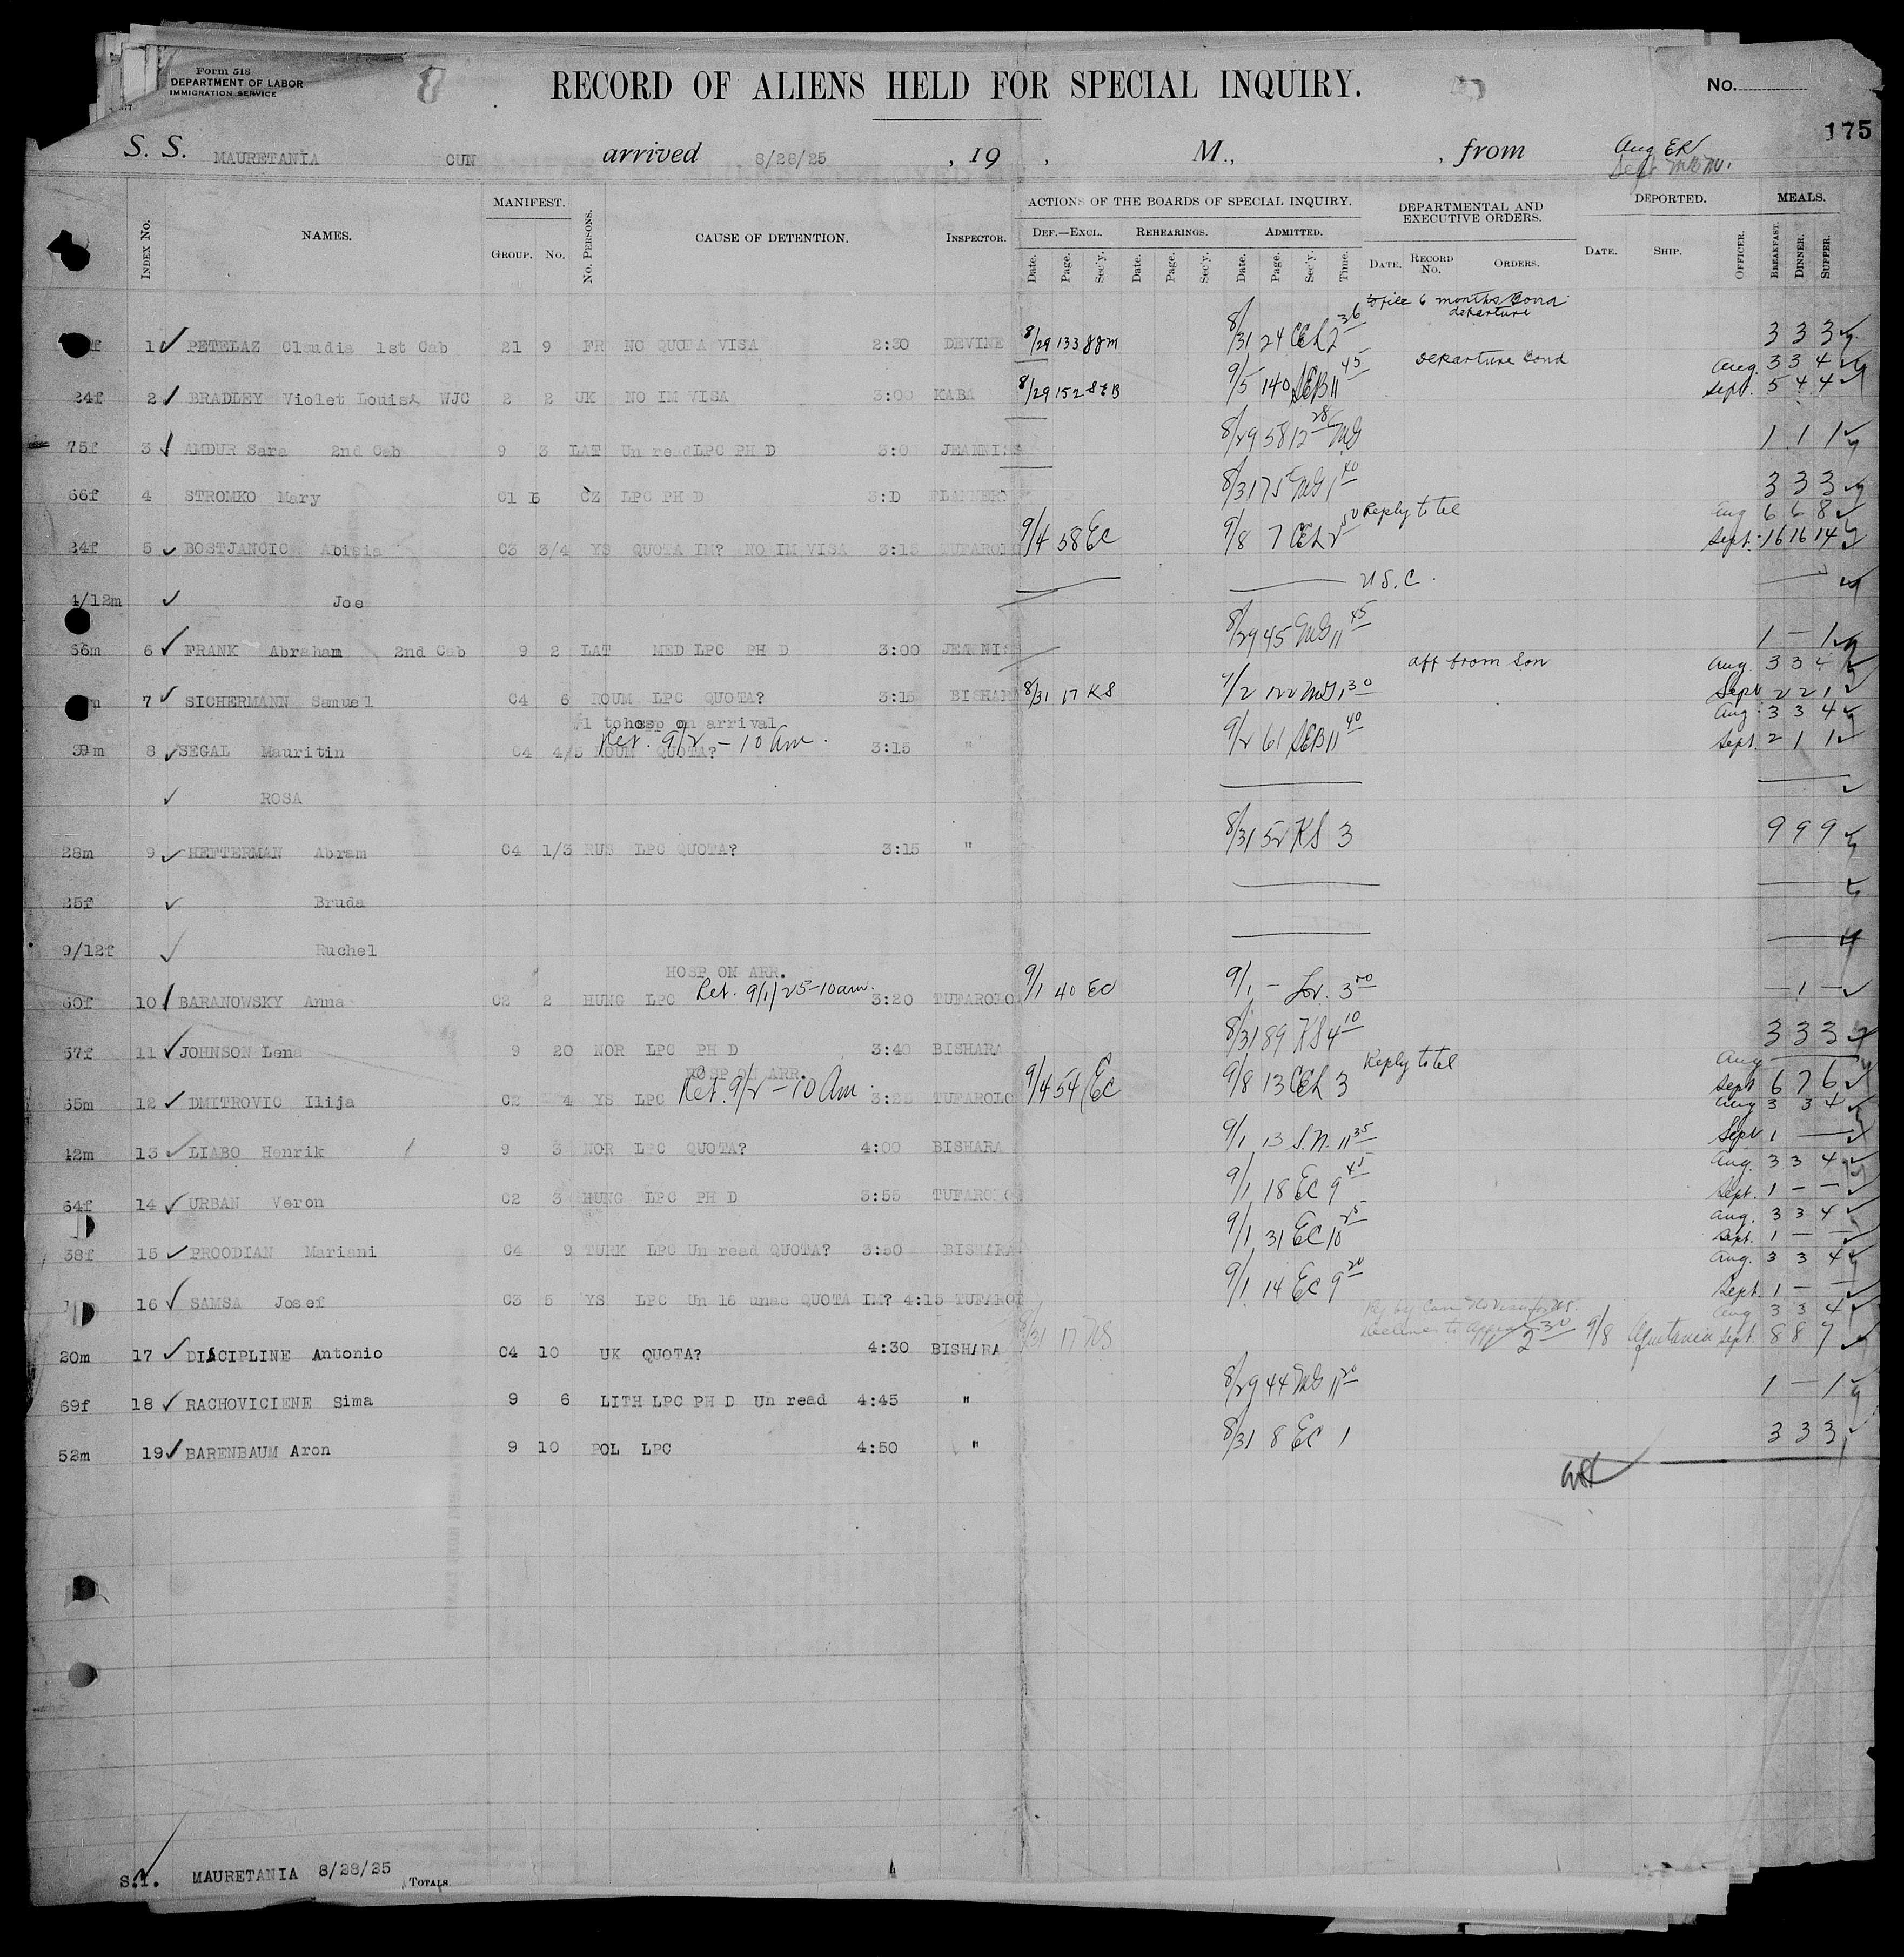 Form 518
DEPARTMENT OF LABOR
IMMIGRATION SERVICE
RECORD OF ALIENS HELD FOR SPECIAL INQUIRY.
No.
175
S. S. MAURETANIA CUN arrived 8/28/25 , 19 , M., , from
Aug ER
Sept
INDEX No. NAMES. MANIFEST. GROUP. No. No. PERSONS. CAUSE OF DETENTION. INSPECTOR. ACTIONS OF THE BOARDS OF SPECIAL INQUIRY. DEF.—EXCL. Date. Page. Sec'y. REHEARINGS. Date. Page. Sec'y. ADMITTED. Date. Page. Sec'y. Time. DEPARTMENTAL AND EXECUTIVE ORDERS. DATE. RECORD No. ORDERS. DEPORTED. DATE. SHIP. OFFICER. MEALS. BREAKFAST. DINNER. SUPPER.
6 months Bond
departure
f 1 PETELAZ Claudia 1st Cab 21 9 FR NO QUOTA VISA 2:30 DEVINE 8/29 133 JJM 8/31 24 CEL 2 36 3 3 3
Departure Bond Aug. 3 3 4
24f 2 BRADLEY Violet Louise WJC 2 2 UK NO IM VISA 3:00 KABA 8/29 152 SEB 9/5 140 SEB 11 45 Sept. 5 4 4
75f 3 AMDUR Sara 2nd Cab 9 3 LAT Un read LPC PH D 3:0 JEANNISS 8/29 58 12 28 MG 1 1 1
66f 4 STROMKO Mary C1 B CZ LPC PH D 3:D FLANNERY 8/31 75 MG 1 40 3 3 3
Reply to tel Aug 6 6 8
24f 5 BOSTJANCIC Abisia C3 3/4 YS QUOTA IM? NO IM VISA 3:15 TUFAROLO 9/4 58 EC 9/8 7 CEL 2 50 Sept. 16 16 14
4/12m Joe U.S.C.
66m 6 FRANK Abraham 2nd Cab 9 2 LAT MED LPC PH D 3:00 JEANNISS 8/29 45 MG 11 45 1 — 1
aff from Son Aug. 3 3 4
m 7 SICHERMANN Samuel C4 6 ROUM LPC QUOTA? 3:15 BISHARA 8/31 17 KS 9/2 120 MG 1 30 Sept 2 2 1
#1 to hosp on arrival Aug. 3 3 4
Ret. 9/2 – 10 Am.
39m 8 SEGAL Mauritin C4 4/5 ROUM QUOTA? 3:15 " 9/2 61 SEB 11 40 Sept. 2 1 1
ROSA
28m 9 HEFTERMAN Abram C4 1/3 RUS LPC QUOTA? 3:15 " 8/31 52 KS 3 9 9 9
25f Bruda
9/12f Ruchel
HOSP ON ARR.
Ret. 9/1/25–10am.
60f 10 BARANOWSKY Anna C2 2 HUNG LPC 3:20 TUFAROLO 9/1 40 EC 9/1 — 3 50 — 1 —
57f 11 JOHNSON Lena 9 20 NOR LPC PH D 3:40 BISHARA 8/31 89 KS 4 10 3 3 3
HOSP ON ARR. Reply to tel Aug
Ret. 9/2 – 10 Am.
65m 12 DMITROVIC Ilija C2 4 YS LPC TUFAROLO 9/4 54 EC 9/8 13 CEL 3 Sept 6 7 6
Aug 3 3 4
42m 13 LIABO Henrik 9 3 NOR LPC QUOTA? 4:00 BISHARA 9/1 13 S.N. 11 35 Sept 1 —
Aug. 3 3 4
64f 14 URBAN Veron C2 3 HUNG LPC PH D 3:55 TUFAROLO 9/1 18 EC 9 45 Sept. 1 — —
Aug. 3 3 4
38f 15 PROODIAN Mariani C4 9 TURK LPC Un read QUOTA? 3:50 BISHARA 9/1 31 EC 10 25 Sept. 1 — —
Aug. 3 3 4
16 SAMSA Josef C3 5 YS LPC Un 16 unac QUOTA IM? 4:15 TUFAROL 9/1 14 EC 9 20 Sept. 1 — —
Aug 3 3 4
20m 17 DISCIPLINE Antonio C4 10 UK QUOTA? 4:30 BISHARA 8/31 17 KS Declines to appeal 2 30 9/8 Aquitania Sept 8 8 7
69f 18 RACHOVICIENE Sima 9 6 LITH LPC PH D Un read 4:45 " 8/29 44 MG 11 20 1 — 1
52m 19 BARENBAUM Aron 9 10 POL LPC 4:50 " 8/31 8 EC 1 3 3 3
S.I. MAURETANIA 8/28/25 TOTALS